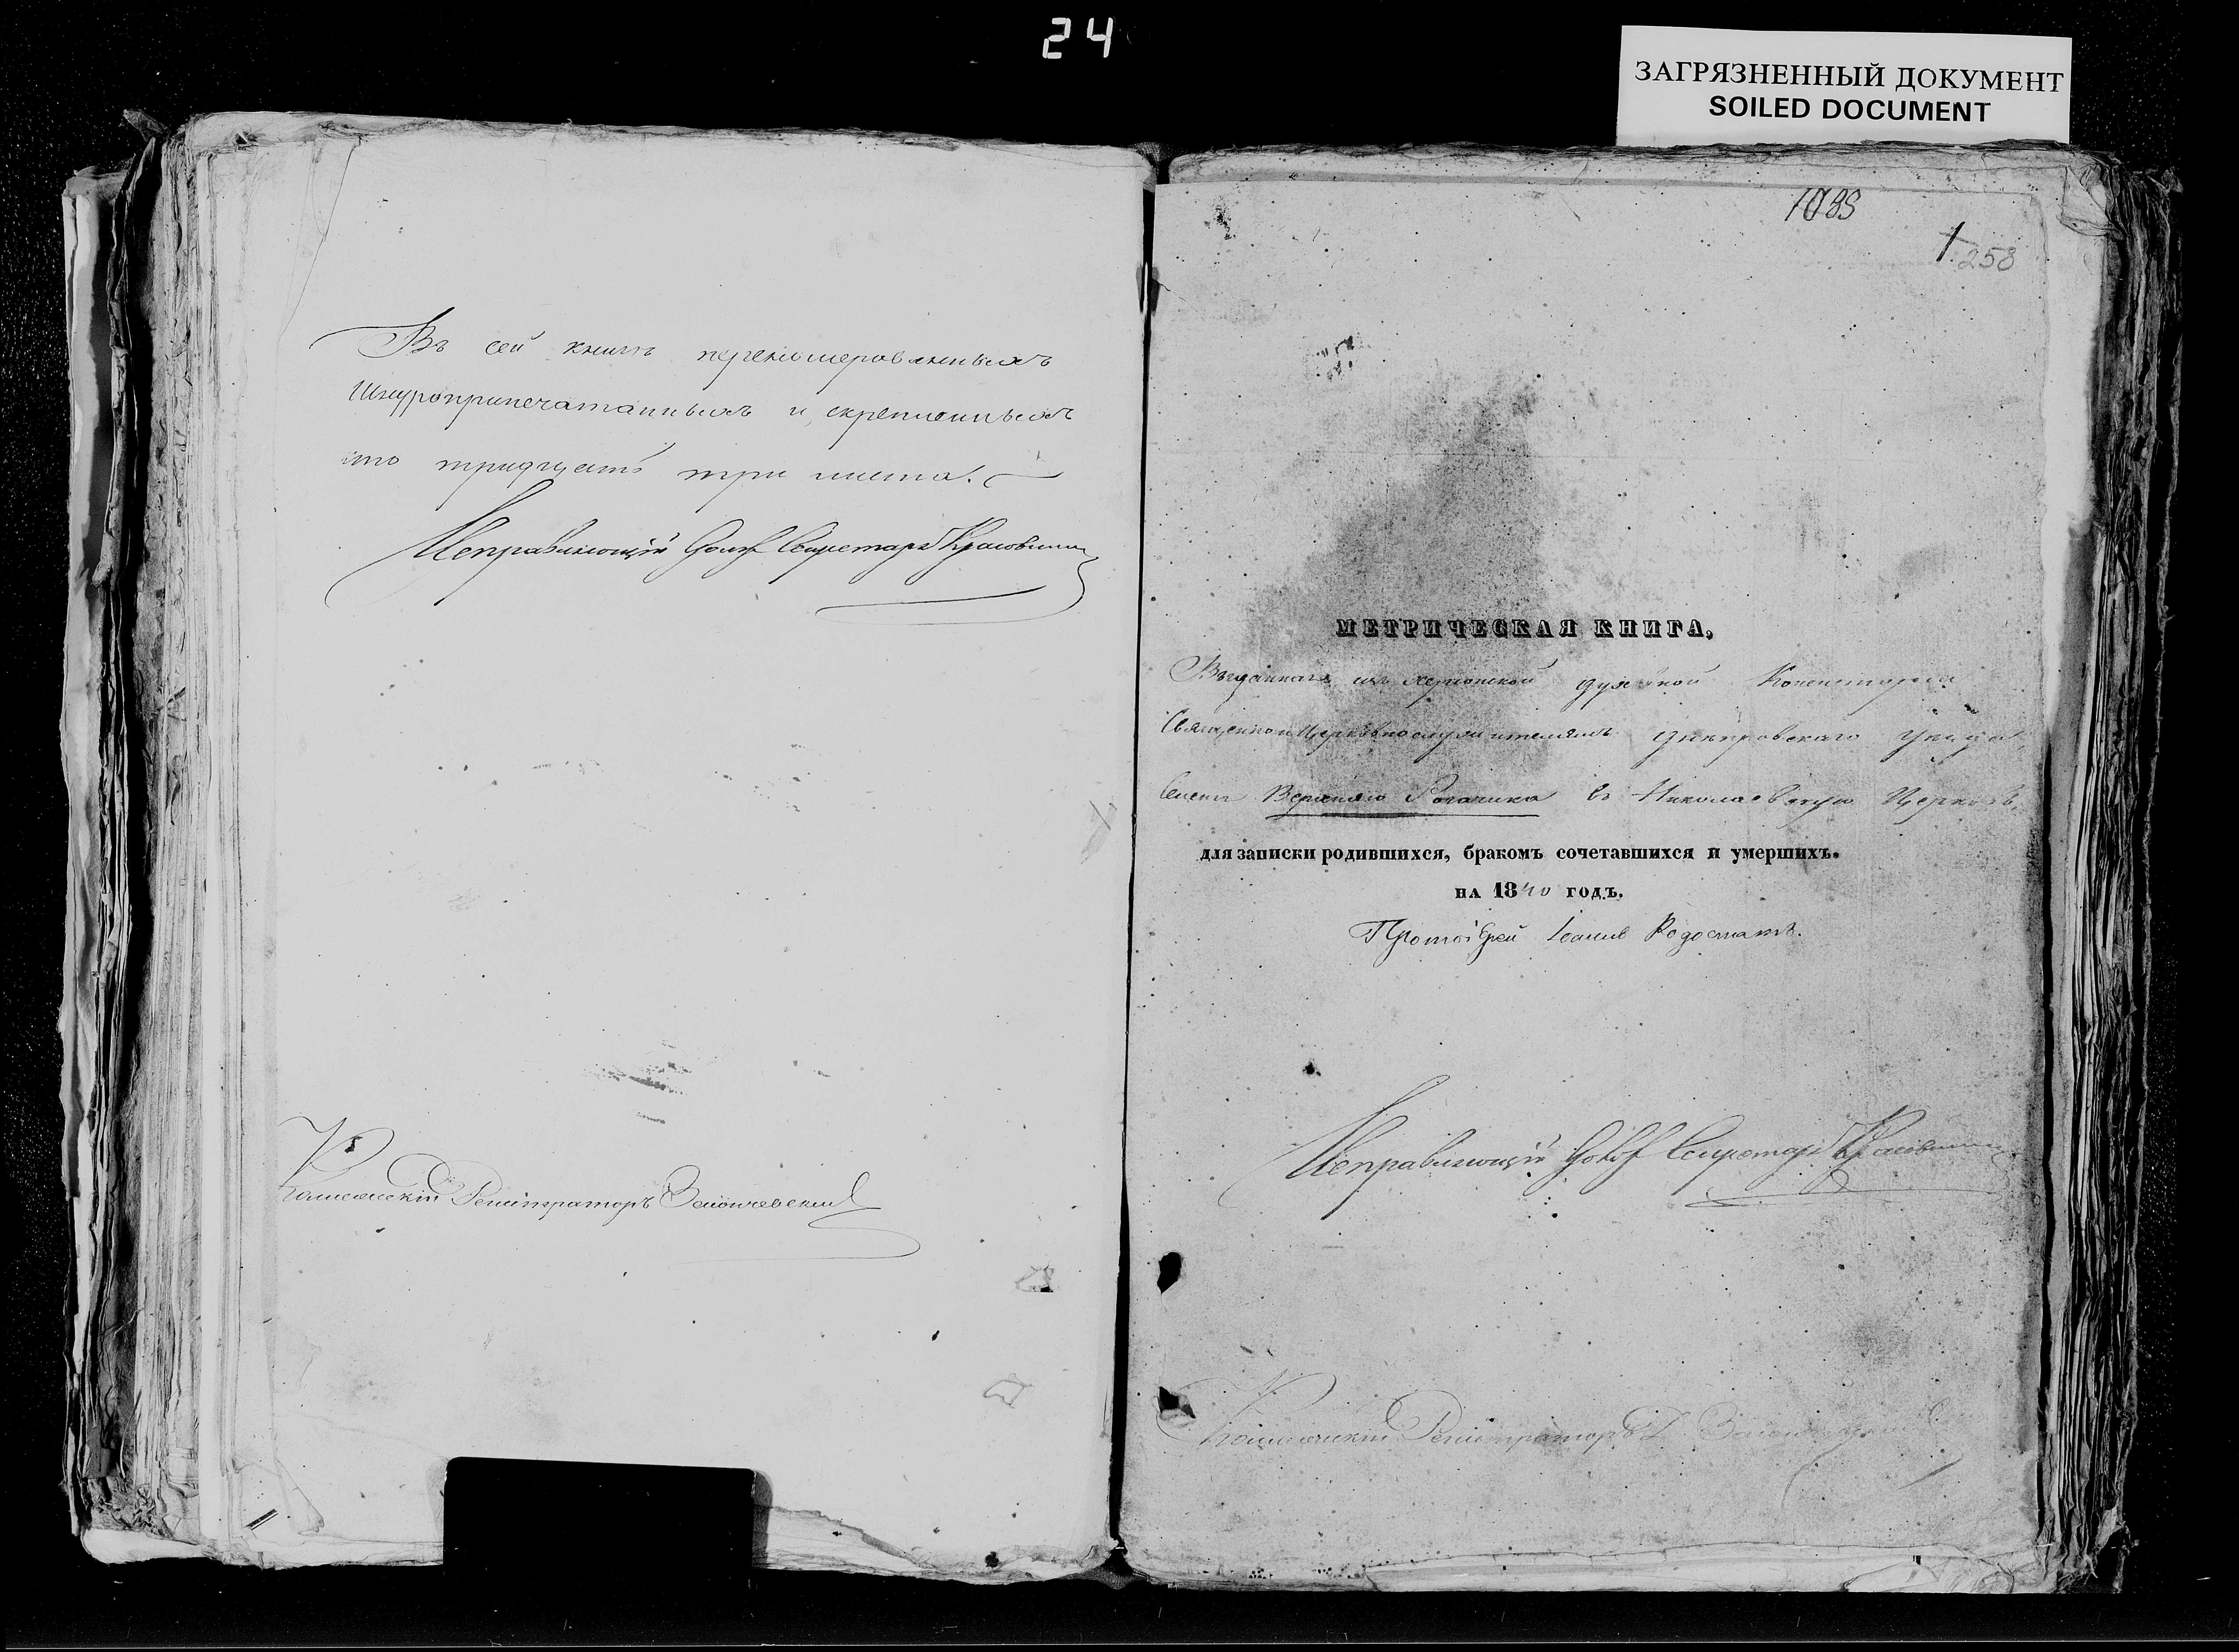 24
ЗАГРЯЗНЕННЫЙ ДОКУМЕНТ
SOILED DOCUMENT
Въ сей книгѣ перенумерованныхъ
Шнуроприпечатанныхъ и скрепленныхъ
сто тридцать три листа.
Исправляющій Долж Секретаря
Коллежскій Регистраторъ
1
258
МЕТРИЧЕСКАЯ КНИГА,
Выданная изъ Херсонской духовной Консисторіи
Священноцерковнослужителямъ Днепровскаго уезда,
Селенія Верхняго Рогачика въ Николаевскую Церковь,
для записки родившихся, бракомъ сочетавшихся и умершихъ.
НА 1840 ГОДЪ.
Протоіерей Іоаннъ Родостатъ.
Исправляющій Долж Секретаря
Коллежскій Регистраторъ